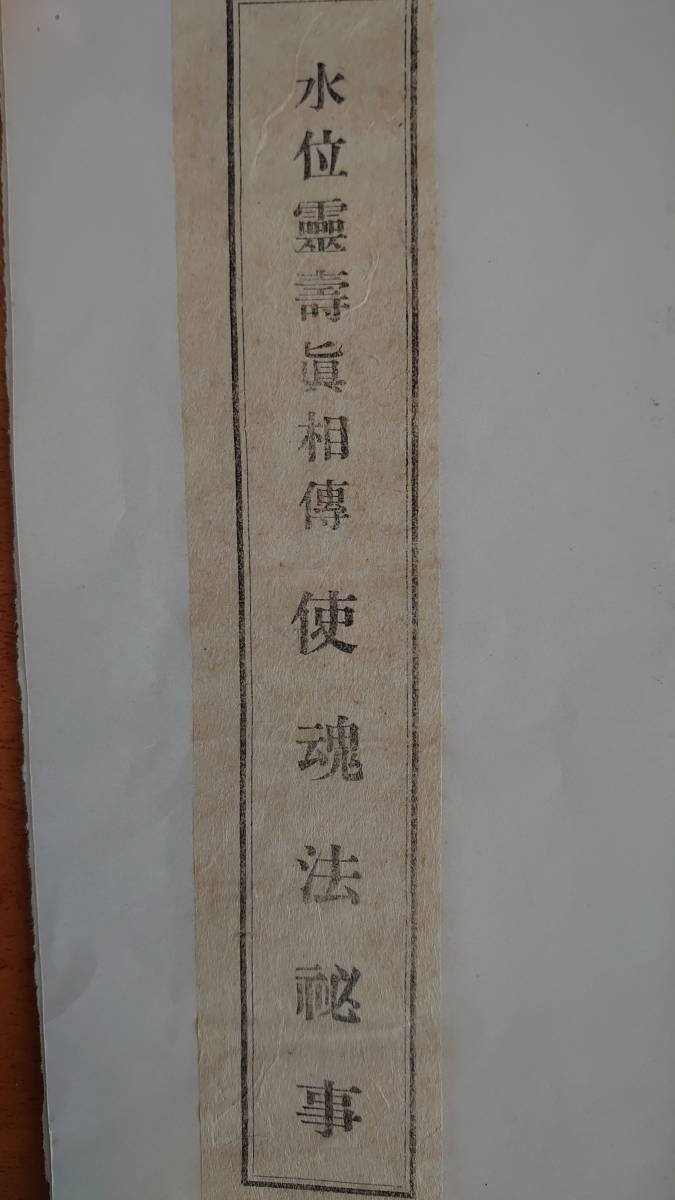 水位靈壽眞相傳 使魂法祕事